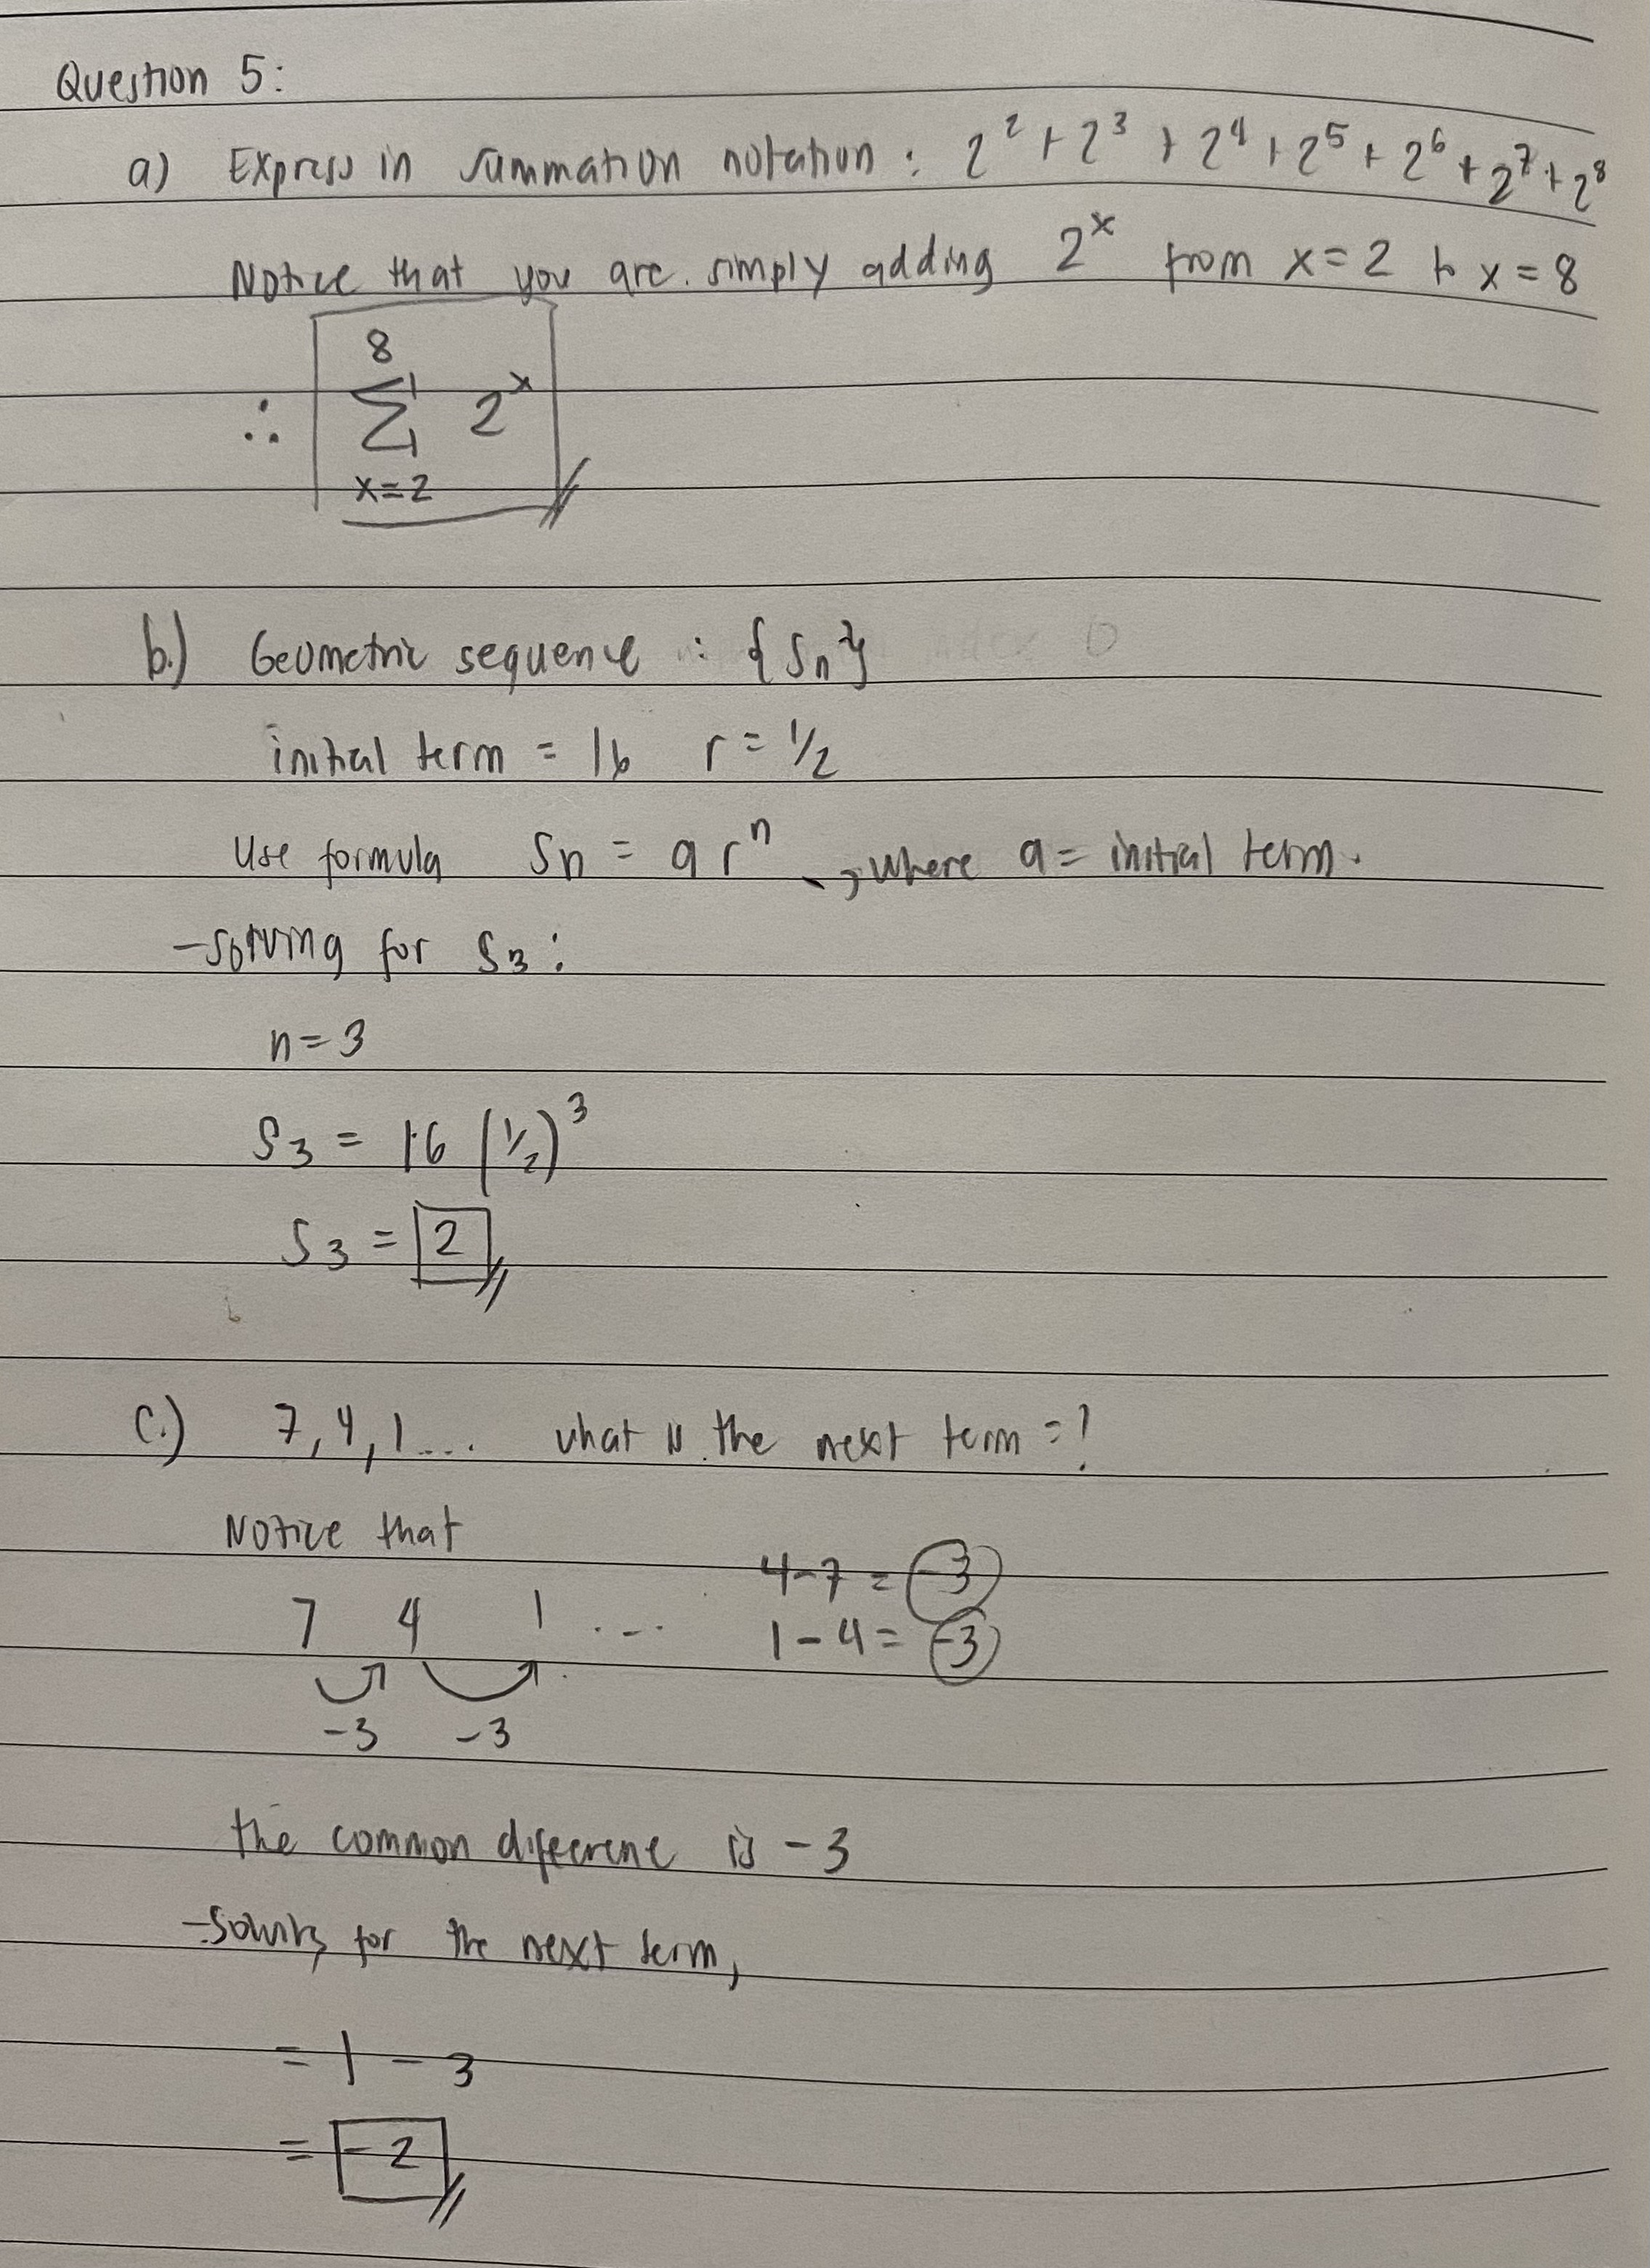 Question 5:
a) Express in summation notation : 2² + 2³ + 2⁴ + 2⁵ + 2⁶ + 2⁷ + 2⁸
Notice that you are simply adding 2ˣ from x = 2 to x = 8
8
∴ ∑ 2ˣ
x=2
b.) Geometric sequence : {Sn}
initial term = 16 r = 1/2
Use formula Sn = a rⁿ , where a = initial term.
-solving for S3:
n=3
S3 = 16 (1/2)³
S3 = 2
c.) 7, 4, 1 .... what is the next term = ?
Notice that
4-7 = -3
7 4 1 ....
1-4 = -3
-3 -3
the common difference is -3
-Solving for the next term,
= 1 - 3
= -2